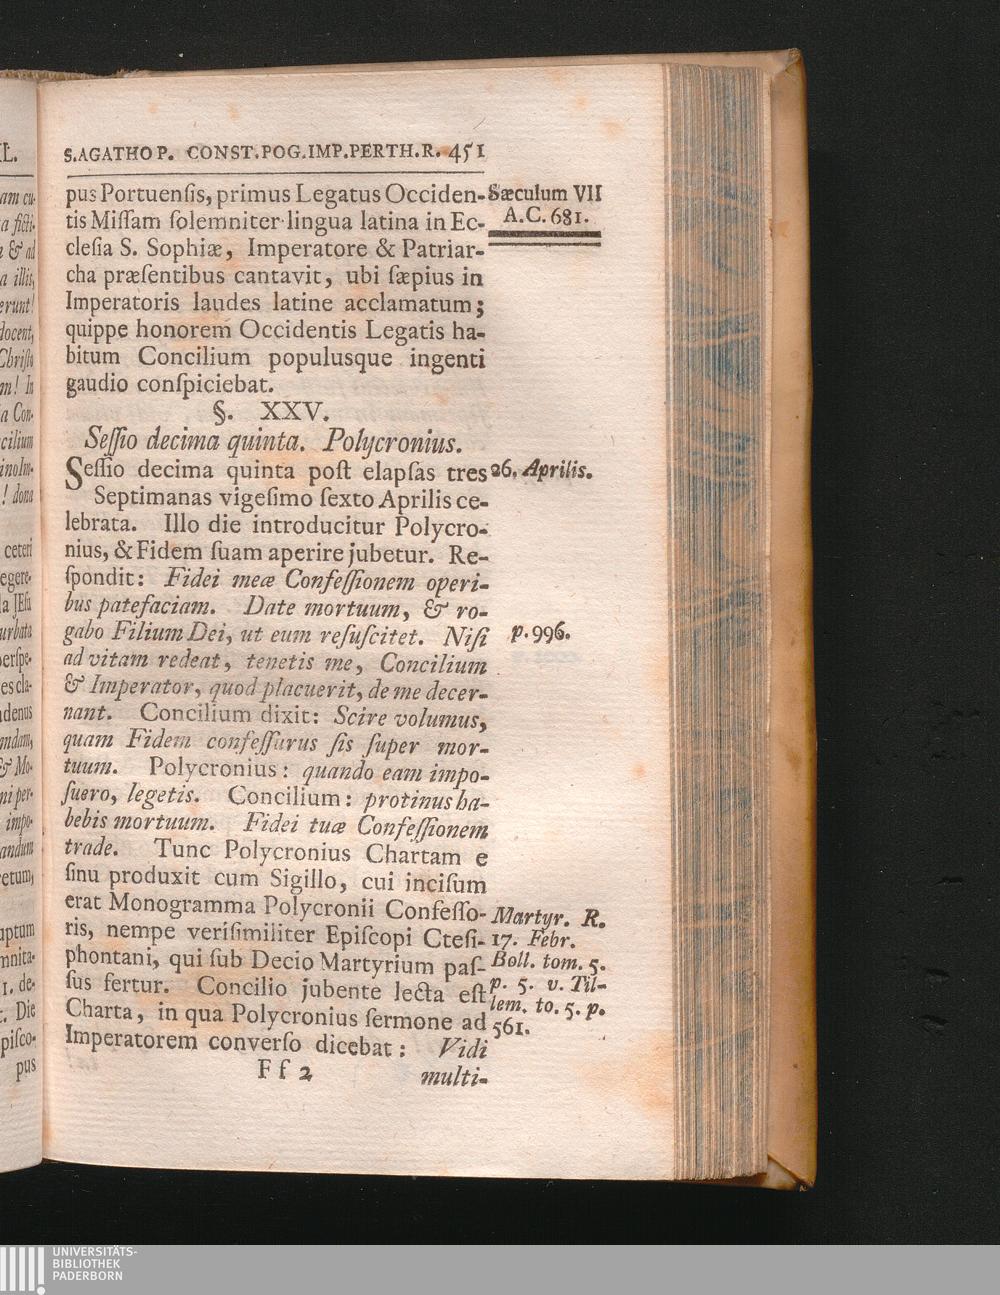 S.AGATHO P. CONST.POG.IMP.PERTH.R. 451
pus Portuenſis, primus Legatus Occiden-
tis Miſſam ſolemniter lingua latina in Ec-
cleſia S. Sophiæ, Imperatore & Patriar-
cha præſentibus cantavit, ubi ſæpius in
Imperatoris laudes latine acclamatum;
quippe honorem Occidentis Legatis ha-
bitum Concilium populusque ingenti
gaudio conſpiciebat.
Sæculum VII
A.C. 681.
§. XXV.
Seſſio decima quinta. Polycronius.
Seſſio decima quinta poſt elapſas tres
26. Aprilis.
Septimanas vigeſimo ſexto Aprilis ce-
lebrata. Illo die introducitur Polycro-
nius, & Fidem ſuam aperire jubetur. Re-
ſpondit: Fidei meæ Confeſſionem operi-
bus patefaciam. Date mortuum, & ro-
gabo Filium Dei, ut eum reſuſcitet. Niſi
p. 996.
ad vitam redeat, tenetis me, Concilium
& Imperator, quod placuerit, de me decer-
nant. Concilium dixit: Scire volumus,
quam Fidem confeſſurus ſis ſuper mor-
tuum. Polycronius: quando eam impo-
ſuero, legetis. Concilium: protinus ha-
bebis mortuum. Fidei tuæ Confeſſionem
trade. Tunc Polycronius Chartam e
ſinu produxit cum Sigillo, cui inciſum
erat Monogramma Polycronii Confeſſo-
ris, nempe veriſimiliter Epiſcopi Cteſi-
phontani, qui ſub Decio Martyrium paſ-
ſus fertur. Concilio jubente lecta eſt
Charta, in qua Polycronius ſermone ad
Imperatorem converſo dicebat: Vidi
Martyr. R.
17. Febr.
Boll. tom. 5.
p. 5. v. Til-
lem. to. 5. p.
561.
Ff 2
multi-
UNIVERSITÄTS-
BIBLIOTHEK
PADERBORN